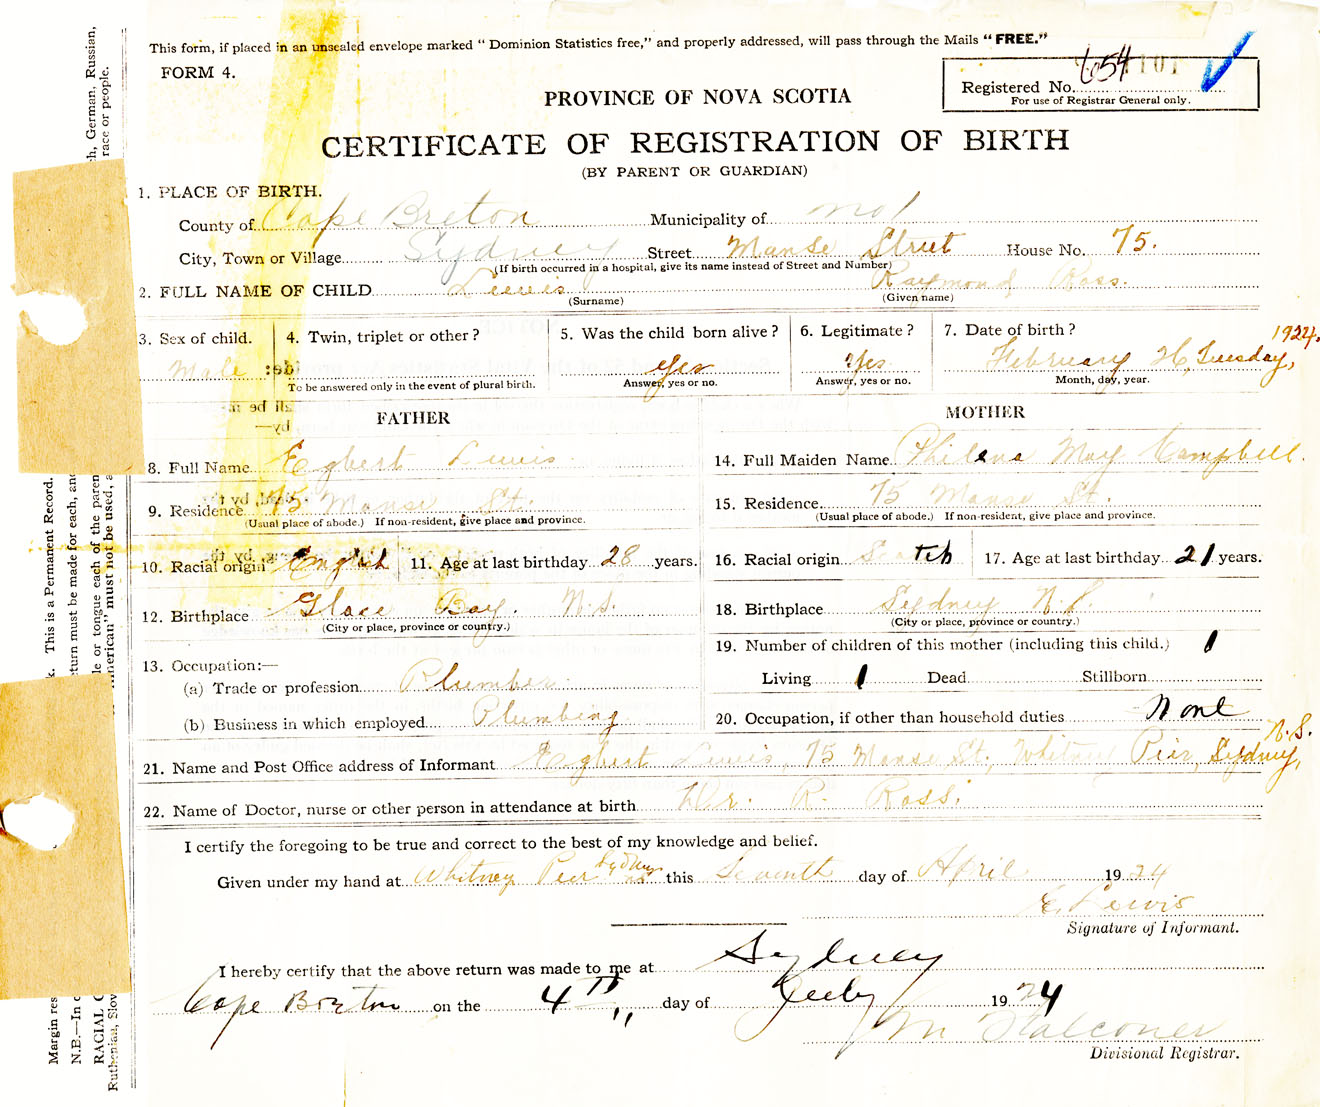 This form, if placed in an unsealed envelope marked “ Dominion Statistics free,” and properly addressed, will pass through the Mails “ FREE.”
FORM 4.
654
Registered No.
For use of Registrar General only.
PROVINCE OF NOVA SCOTIA
CERTIFICATE OF REGISTRATION OF BIRTH
(BY PARENT OR GUARDIAN)
1. PLACE OF BIRTH.
County of Cape Breton Municipality of
City, Town or Village Sydney Street Manse Street House No. 75.
(If birth occurred in a hospital, give its name instead of Street and Number)
2. FULL NAME OF CHILD Lewis Raymond Ross.
(Surname) (Given name)
3. Sex of child. 4. Twin, triplet or other ? 5. Was the child born alive ? 6. Legitimate ? 7. Date of birth ? 1924.
Male Yes Yes February 26, Tuesday,
To be answered only in the event of plural birth. Answer, yes or no. Answer, yes or no. Month, day, year.
FATHER MOTHER
8. Full Name Egbert Lewis 14. Full Maiden Name Philena May Campbell.
9. Residence 75 Manse St. 15. Residence 75 Manse St.
(Usual place of abode.) If non-resident, give place and province. (Usual place of abode.) If non-resident, give place and province.
10. Racial origin English 11. Age at last birthday 28 years. 16. Racial origin Scotch 17. Age at last birthday 21 years.
12. Birthplace Glace Bay. N.S. 18. Birthplace Sydney N.S.
(City or place, province or country.) (City or place, province or country.)
13. Occupation:— 19. Number of children of this mother (including this child.) 1
(a) Trade or profession Plumber Living 1 Dead Stillborn
(b) Business in which employed Plumbing 20. Occupation, if other than household duties None
21. Name and Post Office address of Informant Egbert Lewis, 75 Manse St., Whitney Pier, Sydney, N.S.
22. Name of Doctor, nurse or other person in attendance at birth Dr. R. Ross.
I certify the foregoing to be true and correct to the best of my knowledge and belief.
Given under my hand at Whitney Pier Sydney NS this Seventh day of April 1924
E. Lewis
Signature of Informant.
I hereby certify that the above return was made to me at Sydney
Cape Breton on the 4th day of July 1924
M Falconer
Divisional Registrar.
Margin res
k. This is a Permanent Record.
N.B.—In c
eturn must be made for each, and
RACIAL O
le or tongue each of the paren
ch, German, Russian,
Ruthenian, Slov
merican” must not be used, a
race or people.